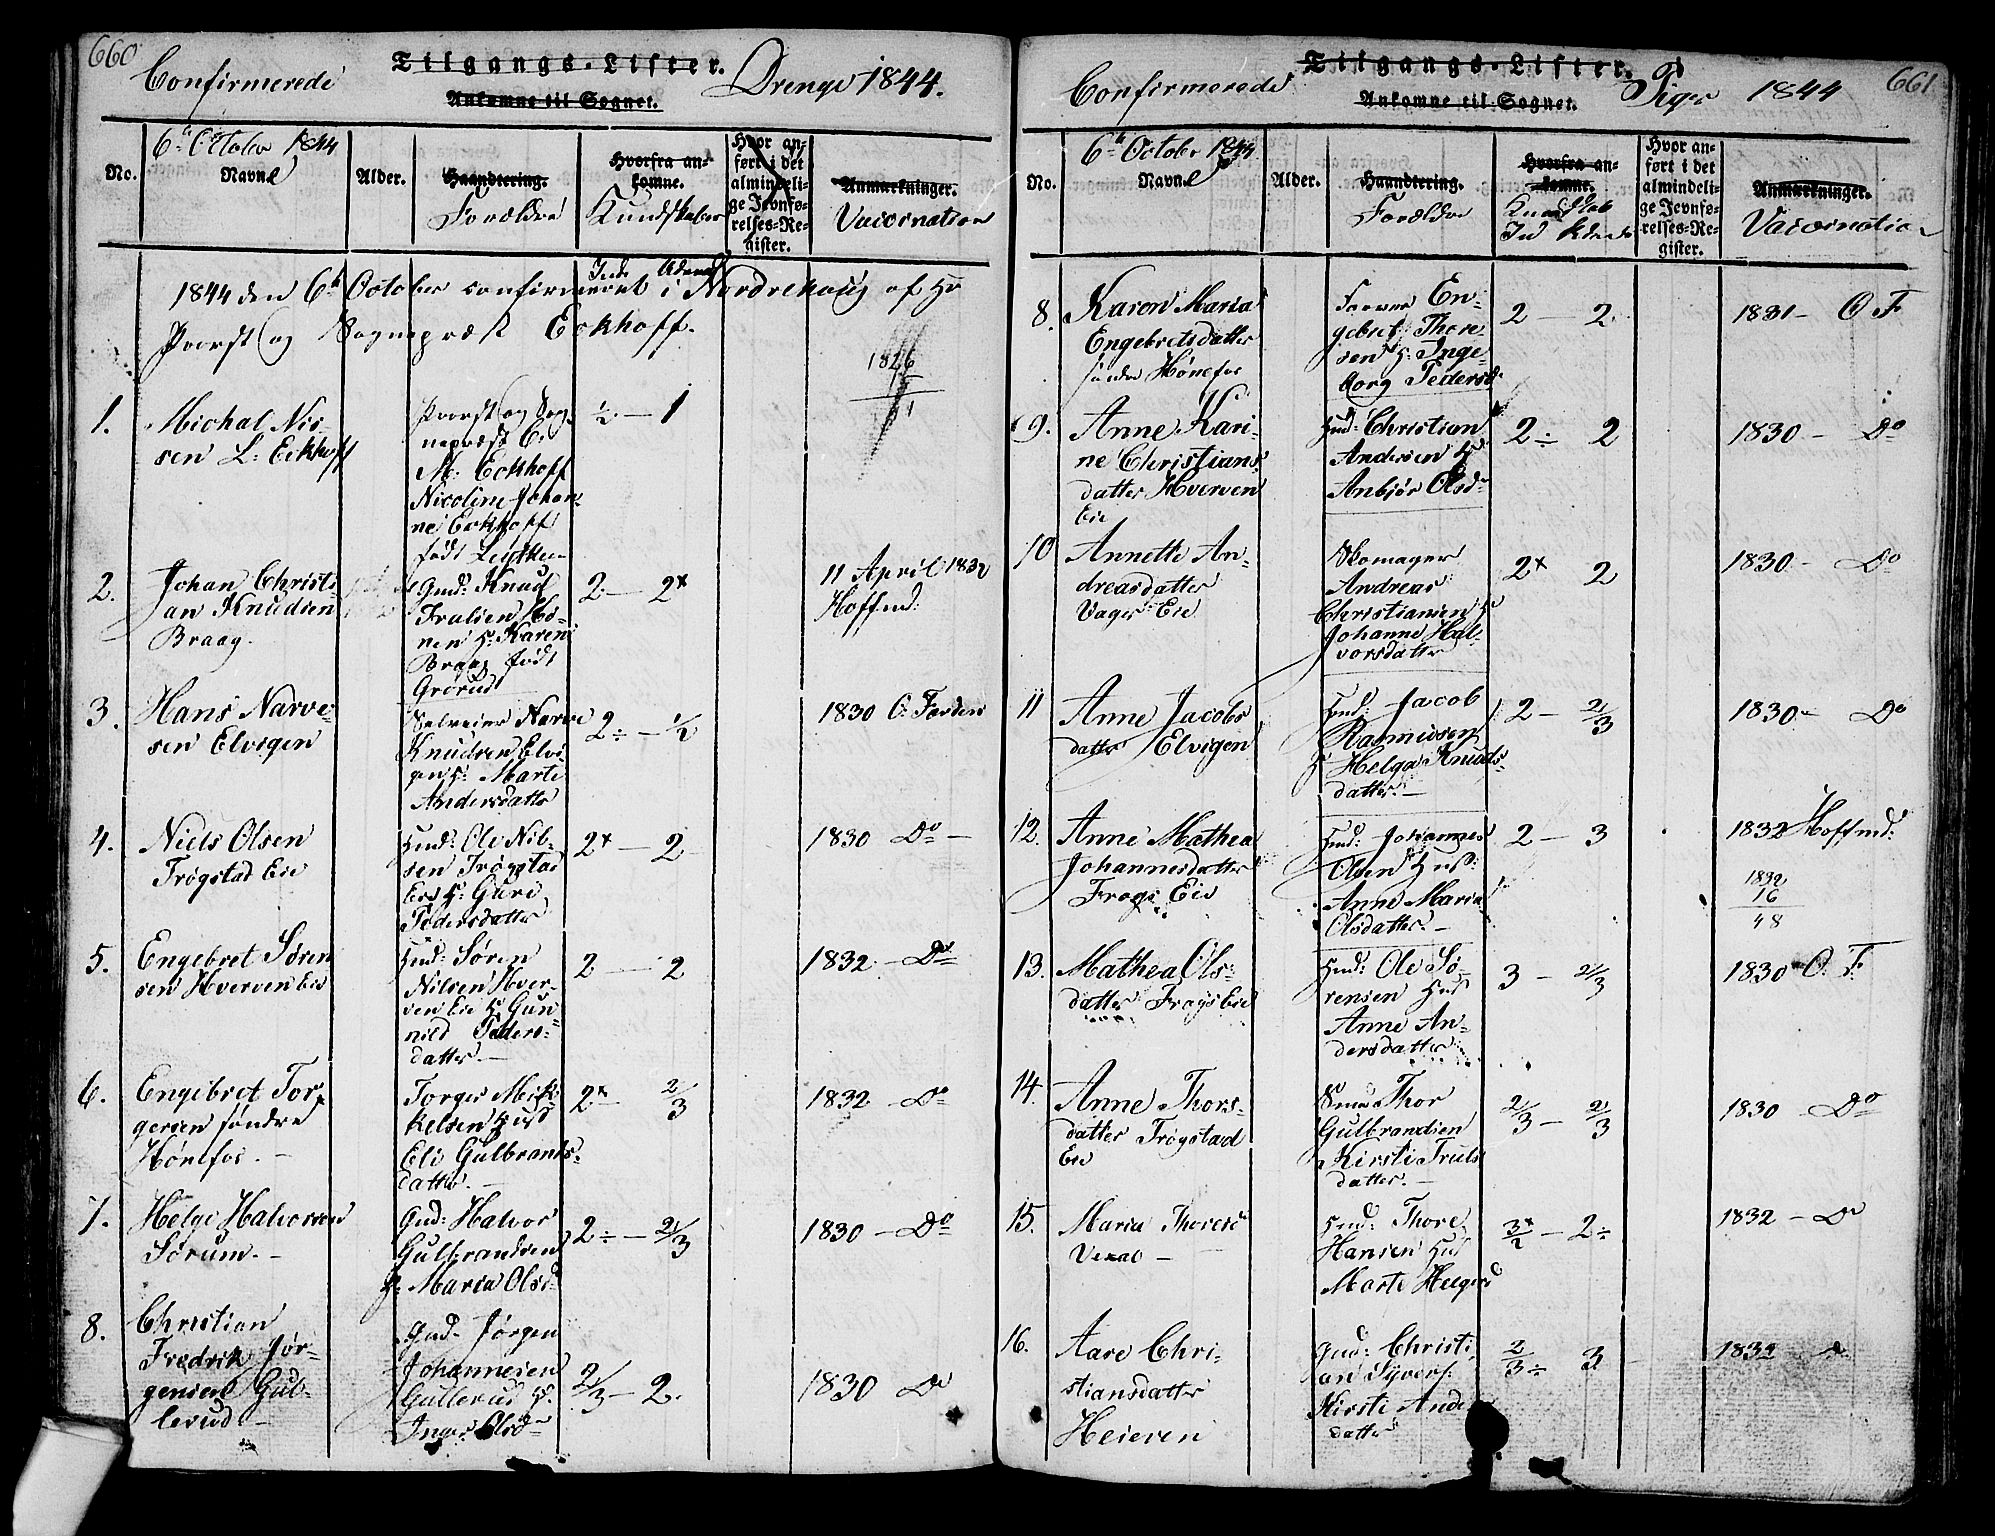 660
Confirmerede Tilgangs-Lister. Drenge 1844.
Ankomne til Sognet.
6te October 1844
No. Navne Alder. Haandtering. Hvorfra ankomne. Hvor anført i det almindelige Jevnførelses-Register. Anmærkninger.
Forældre Kundskaber Vaccination
Inde Udenad
1844 den 6te October confirmeret i Norderhoug af Hr
Provst og Sognepræst Eckhoff.
1826
1.
Michal Nis-
sen L: Eckhoff
Provst og Sog-
nepræst E.
M: Eckhoff
Nicoline Johan-
ne Eckhoff
født
½ — 1
2.
Johan Christi-
an Knudsen
Braag.
Gmd: Knud
H: Karen
Braag født
Grorud
2 — 2×
11 April 1832
Hoffmd:
3.
Hans Narve-
sen Elvigen
Selveier Narve
Knudsen Elvi-
gen H: Marte
Andersdatter
2 ÷ — ½
1830 O: Farden
4.
Niels Olsen
Trøgstad Eie
Hmd: Ole Nil-
sen Trøgstad
Eie H: Guri
Pedersdatter
2× — 2
1830 Do —
5.
Engebret Søren
sen Hverven Eie
Hmd: Søren
Nilsen Hver-
ven Eie H Gun-
nild Peders-
datter. —
2 — 2
1832. — Do
6.
Engebret Tor-
gersen søndre
Hønefos. —
Torger Mik-
kelsen Hust
Eli Gulbrands-
datter. —
2× — 2/3
1832 — Do
7.
Helge Halvorsen
Sørum. —
Gmd: Halvor
Gulbrandsen
H. Maria Olsd
2 ÷ — 2/3
1830 — Do
8.
Christian
Fredrik Jør-
gensen Gul-
lerud —
Gmd. Jørgen
Johannesen
Gullerud H.
Inger Olsd
2/3 — 2.
1830 Do
661
Confirmerede Tilgangs-Lister. Piger 1844
Ankomne til Sognet.
6te Octobr 1844
No. Navne Alder. Haandtering. Hvorfra ankomne. Hvor anført i det almindelige Jevnførelses-Register. Anmærkninger.
Forældre Kundskab Vaccination
8.
Karen Maria
Engebretsdatter
søndre Hønefos
Farver En-
gebret Thore
sen H: Inge-
borg Pedersd
2 — 2
1831 — O F
9.
Anne Kari-
ne Christians
datter Hverven
Eie
Hmd: Christian
Andersen H
Anbjør Olsdr
2 ÷ 2
1830 — Do
10
Annette An
dreasdatter
Vager Eie
Skomager
Andreas
Christiansen H
Johanne Hal-
vorsdatter
2× 2
1830 — Do
11
Anne Jacobs
datter Elvigen
Hmd: Jacob
Rasmusen
H Helga Knuds-
datter. —
2 — 2/3
1830 — Do
12.
Anne Mathea
Johannesdatter
Frogs Eie
Hmd: Johannes
Olsen Hus:
Anne Maria
Olsdatter. —
2 — 3
1832 Hoffmd:
1832
16
48
13.
Mathea Ols-
datter Frogs Eie
Hmd: Ole Sø-
rensen Hus
Anne An-
dersdatter
3 — 2/3
1830 O. F.
14.
Anne Thors-
datter Trøgstad
Eie
Thor
Gulbrandsen
Kirsti Truls
datter. —
2/3 — 2/3
1830 — Do
15.
Maria Thoresd
—
Hmd: Thore
Hansen Hus
Marte Helgesd
3×/2 — 2 ÷
1832 — Do
16.
Aare Chri-
stiansdatter
Heieren
Gmd: Christi
an Syvers.
Kirsti Anders
datter
2/3 ÷ 3
1832 — Do